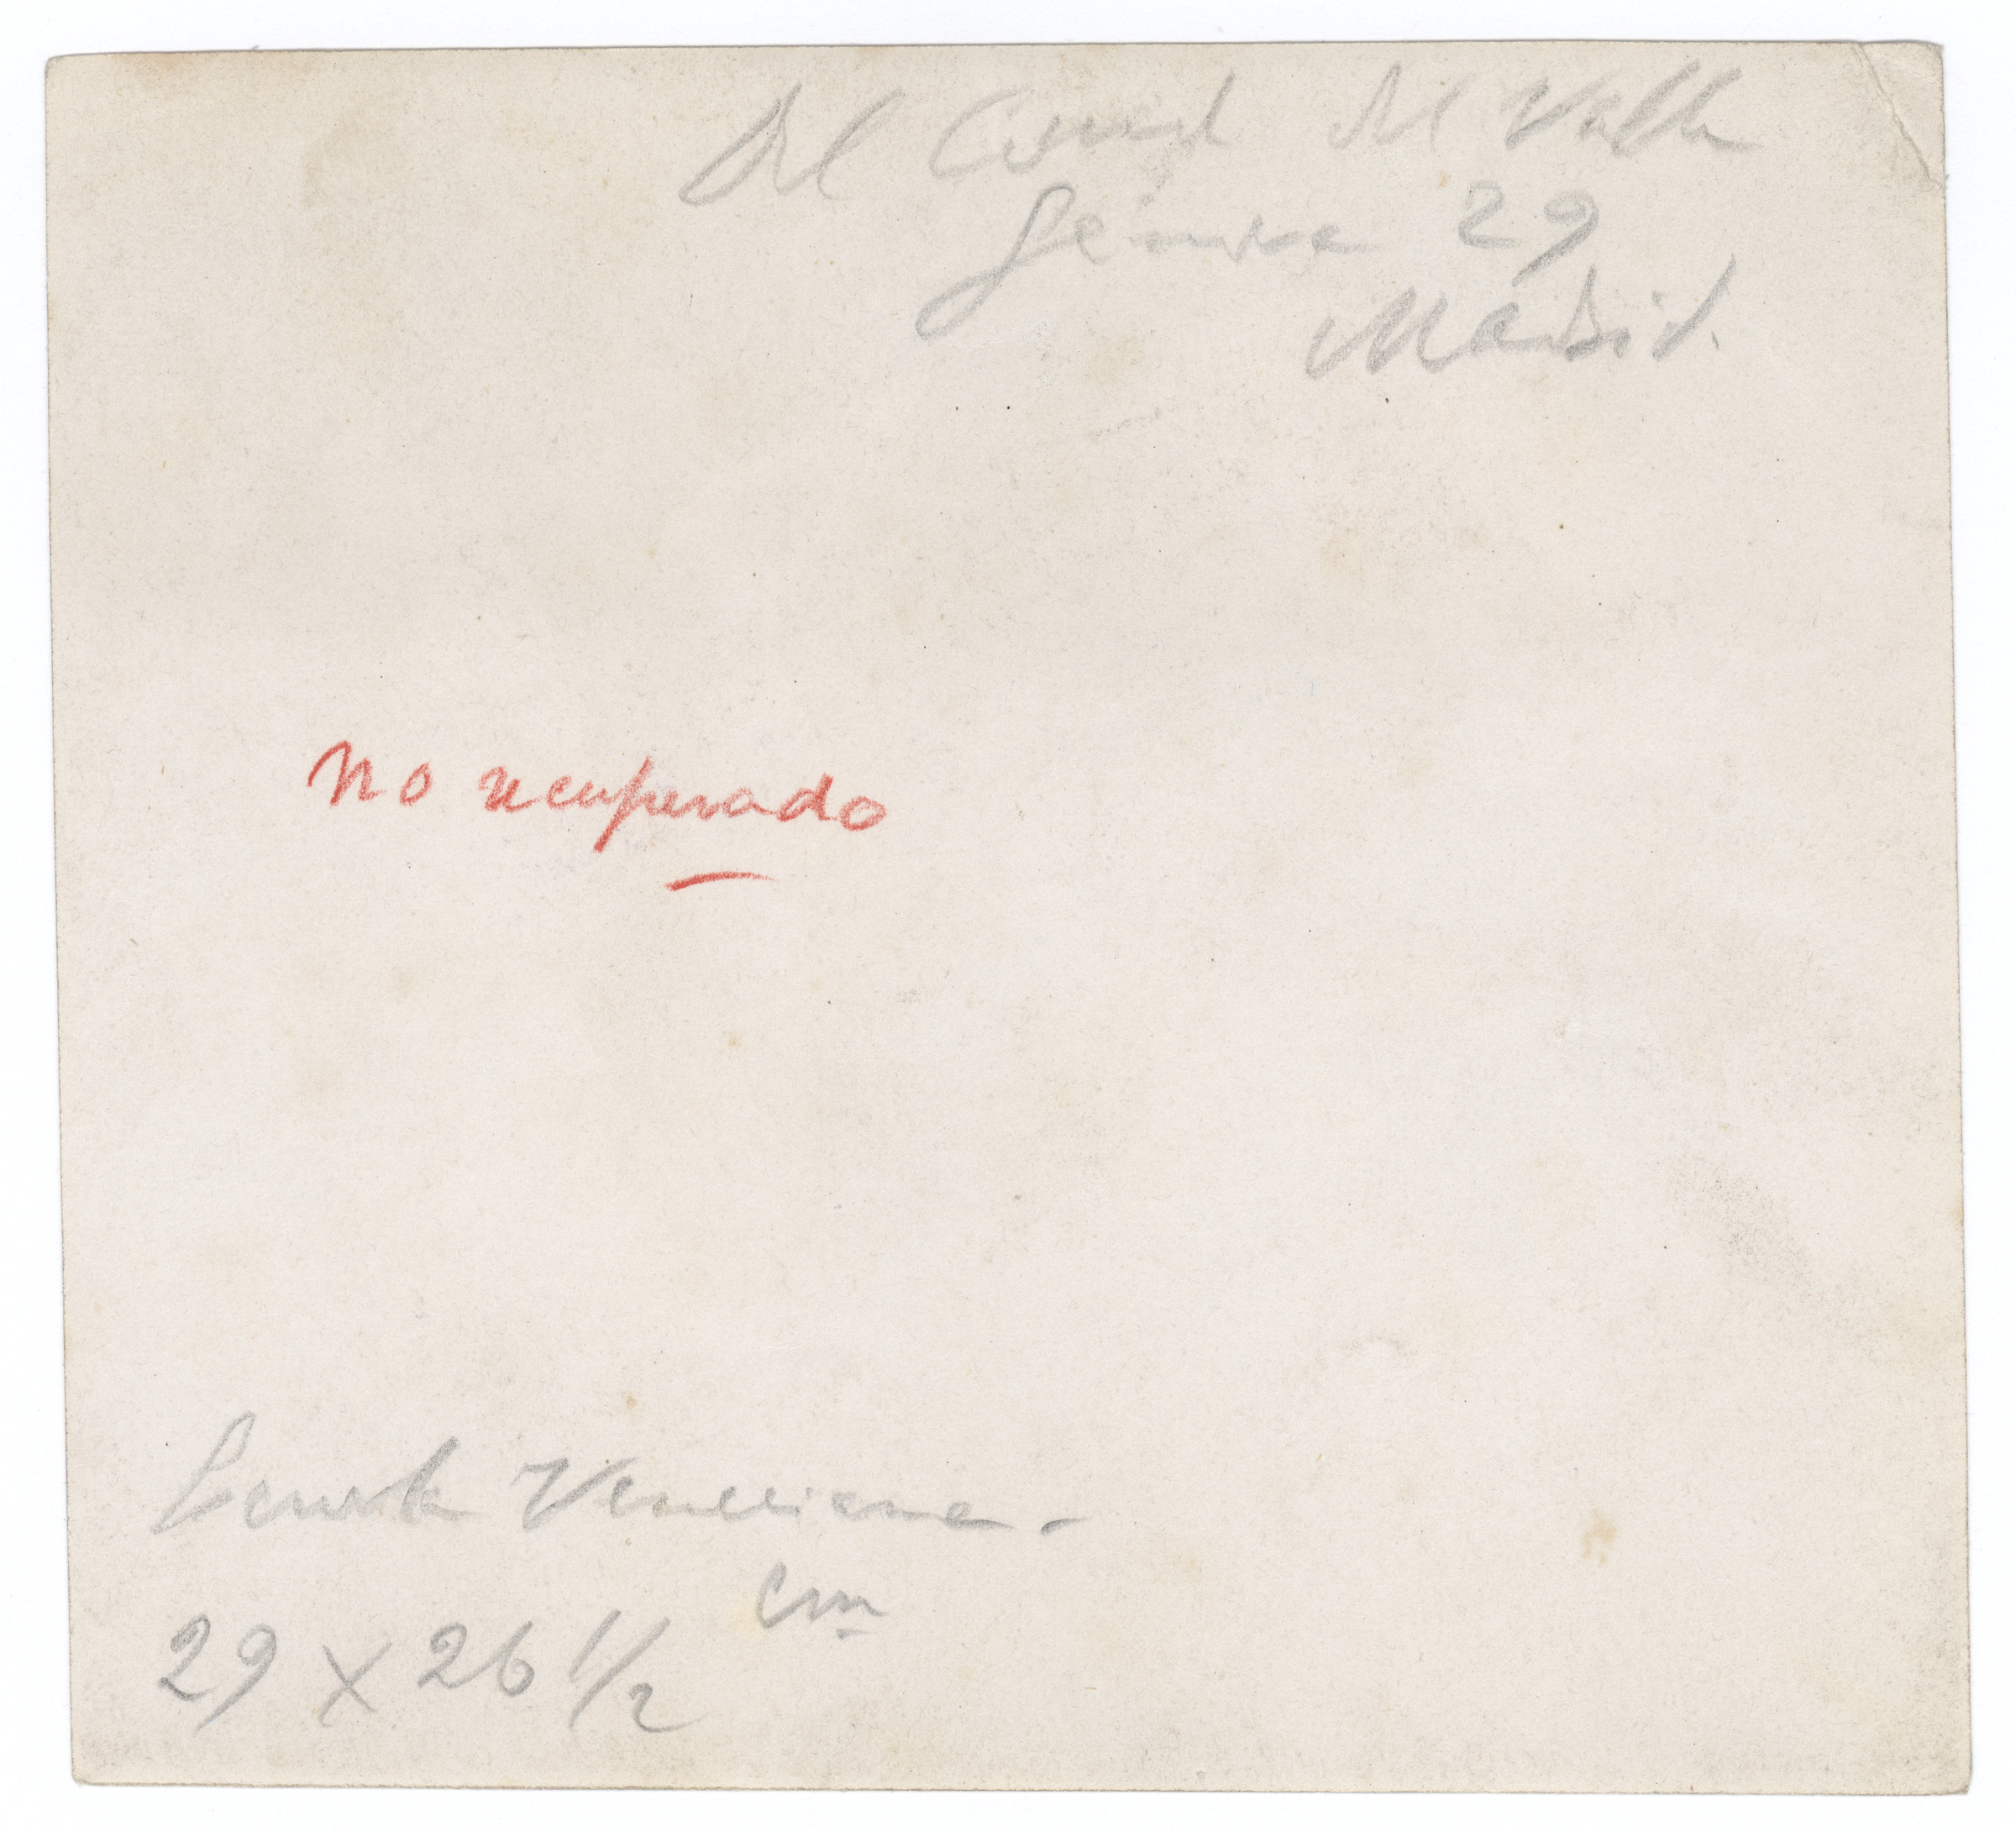 Del Conde del Valle
Génova 29
Madrid.
no recuperado
Escuela Veneciana -
cm
29 x 26 1/2